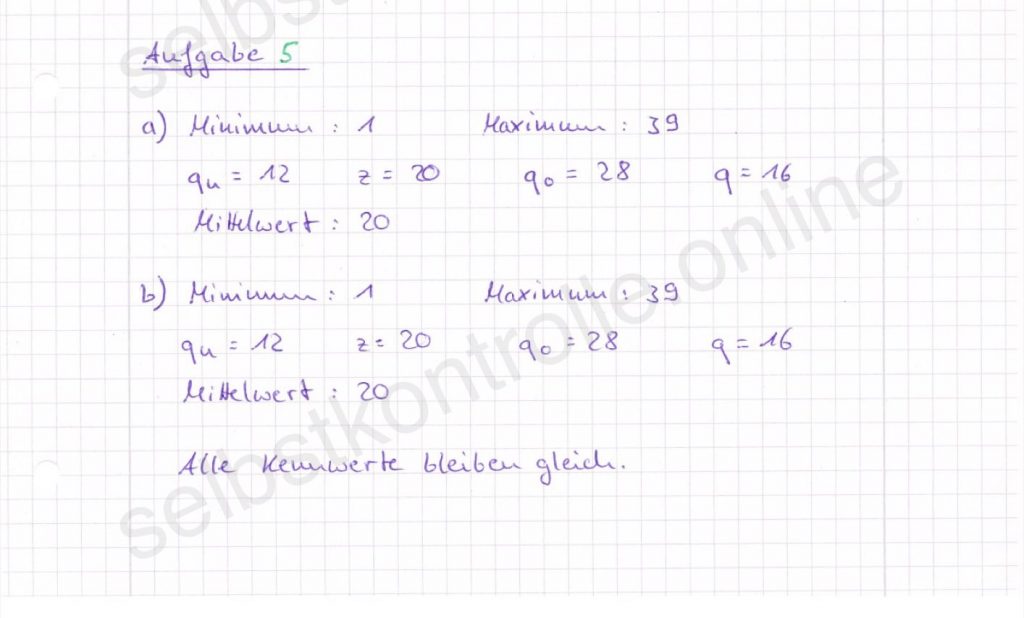 Aufgabe 5
a) Minimum : 1 Maximum : 39
qu = 12 z = 20 qo = 28 q = 16
Mittelwert : 20
b) Minimum : 1 Maximum : 39
qu = 12 z = 20 qo = 28 q = 16
Mittelwert : 20
Alle Kennwerte bleiben gleich.
selbstkontrolle.online
selbstkontrolle.online